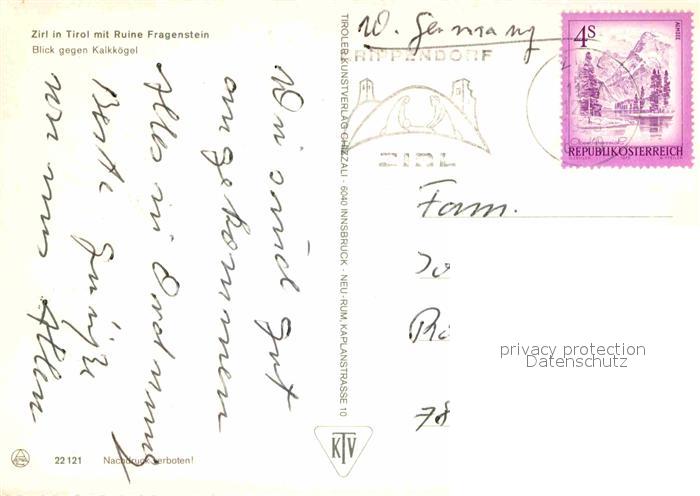 Zirl in Tirol mit Ruine Fragenstein
Blick gegen Kalkkögel
Wir sind gut
angekommen
Alles in Ordnung
Beste Grüße
von uns Allen
22121 Nachdruck verboten!
TIROLER KUNSTVERLAG CHIZZALI · 6040 INNSBRUCK · NEU-RUM, KAPLANSTRASSE 10
KTV
W. Germany
KRIPPENDORF
ZIRL
4S
ALMSEE
REPUBLIK ÖSTERREICH
Fam.
78
privacy protection
Datenschutz